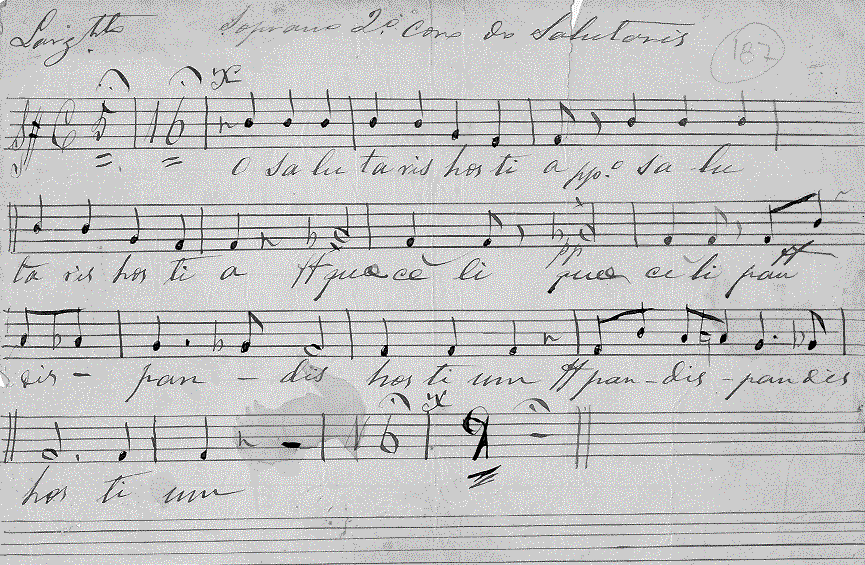 Largtto Soprano 2º coro do Salutaris 187
5 16
O sa lu ta ris hos ti a ppº sa lu
ta ris hos ti a ff quae cè li pp quae cè li pan ff
dis - pan - dis hos ti um ff pan - dis - pan dis
16 9
hos ti um